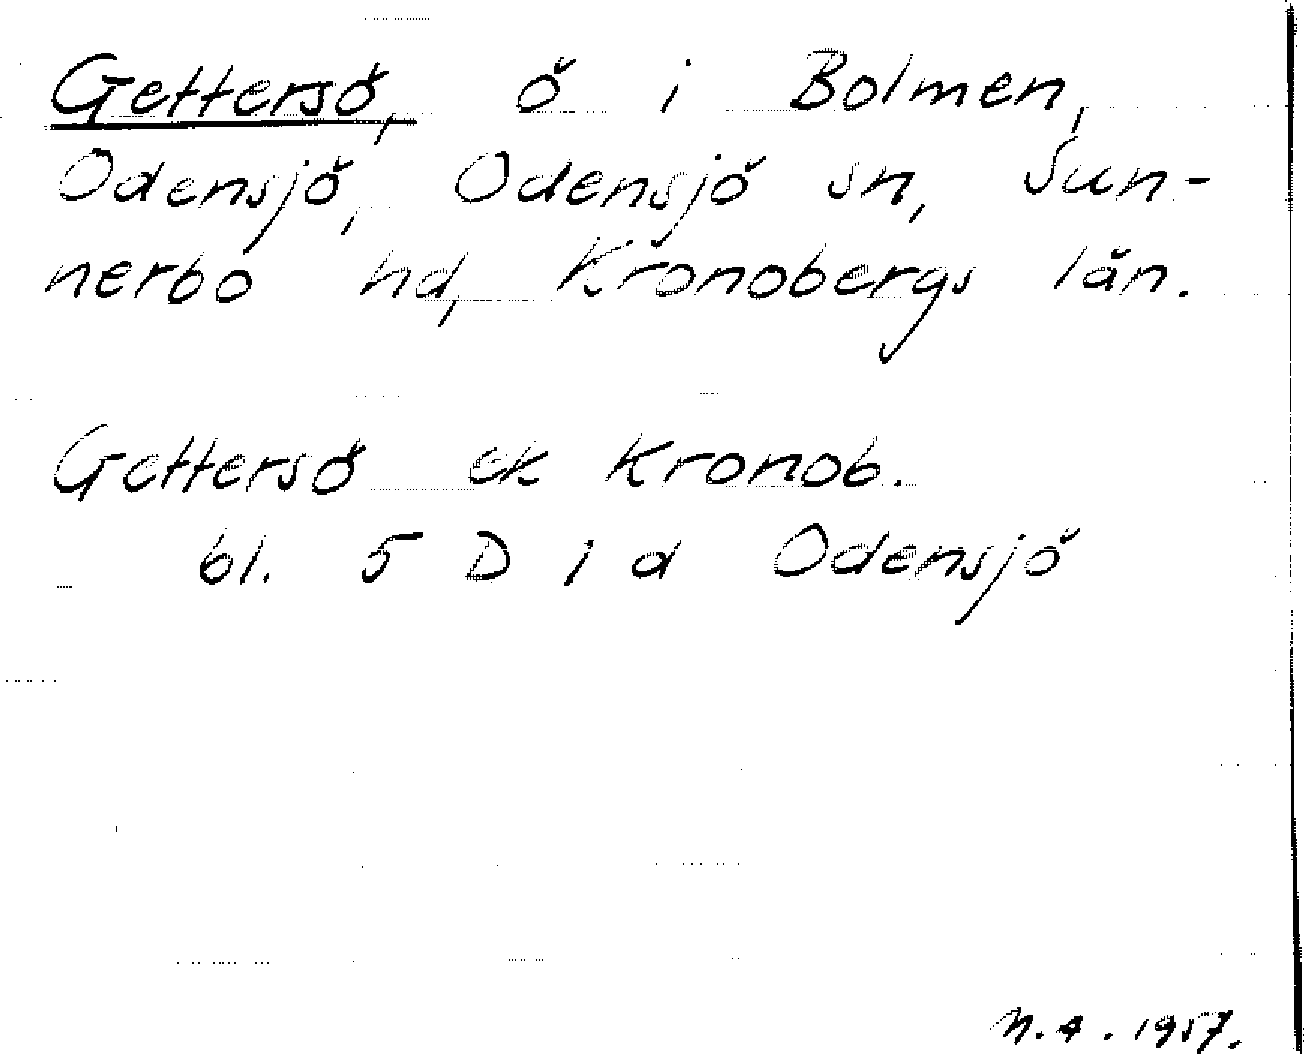 Gettersö, ö i Bolmen,
Odensjö, Odensjö sn, Sun-
nerbo hd, Kronobergs län.
Gettersö ek Kronob.
bl. 5 D 1 d Odensjö
N.A. 1957.